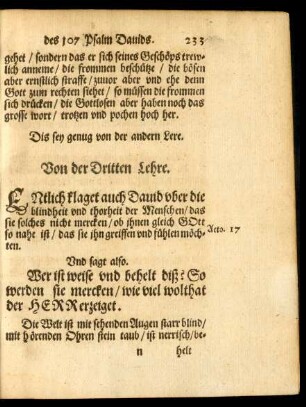 des 107 Psalm Dauids. 233
gehet / sondern das er sich seines Geschöps trew-
lich anneme / die frommen beschütze / die bösen
aber ernstlich straffe / zuuor aber vnd ehe denn
Gott zum rechten siehet / so müssen die frommen
sich drücken / die Gottlosen aber haben noch das
grosse wort / trotzen vnd pochen hoch her.
Dis sey genug von der andern Lere.
Von der Dritten Lehre.
ENtlich klaget auch Dauid vber die
blindheit vnd thorheit der Menschen / das
sie solches nicht mercken / ob jhnen gleich GOtt
so naht ist / das sie jhn greiffen vnd fühlen möch- Acto. 17
ten.
Vnd sagt also.
Wer ist weise vnd behelt diß? So
werden sie mercken / wie viel wolthat
der HERR erzeiget.
Die Welt ist mit sehenden Augen starr blind /
mit hörenden Ohren stein taub / ist nerrisch / be-
n helt